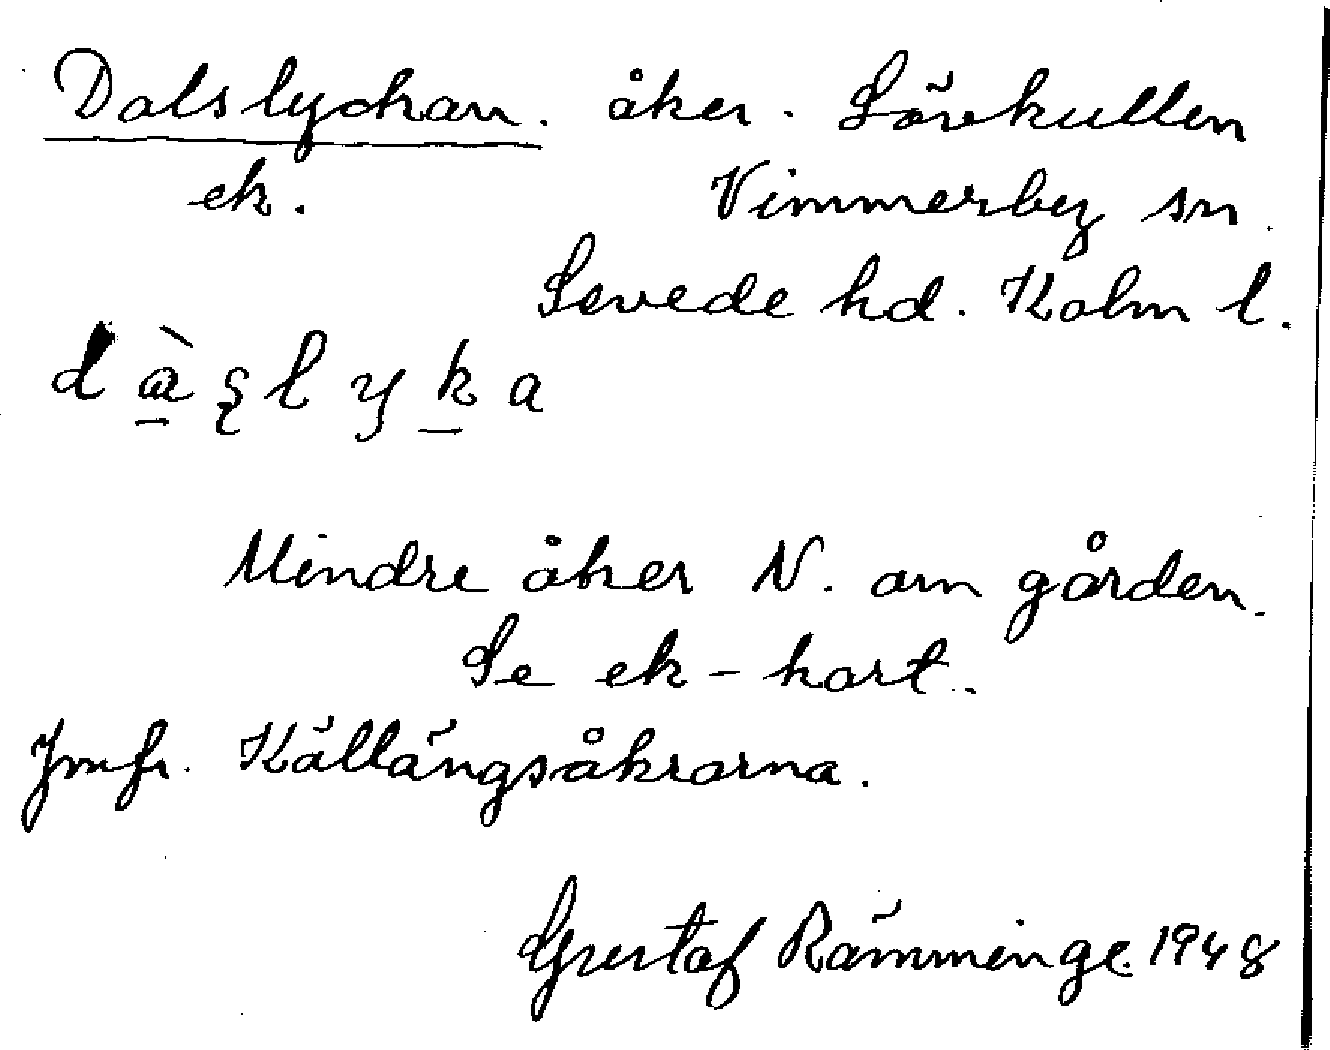 Dalslyckan. åker. Lövkullen
ek. Vimmerby sn.
Sevede hd. Kalm l.
dàslyka
Mindre åker N. om gården.
Se ek-kart.
Jmfr. Källängsåkrarna.
Gustaf Rämminge. 1948